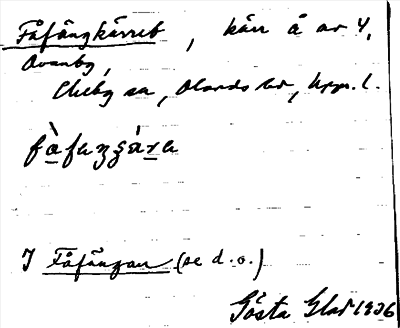 Fåfängkärret, kärr å ar 4,
Ovanby,
Ekeby sn, Olands hd, Upps. l.
fàfaŋʂára
I Fåfängan (se d.o.)
Gösta Glad 1936